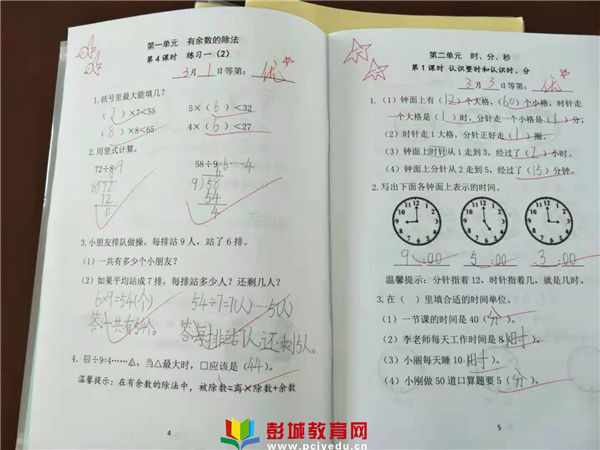 第一单元 有余数的除法
第 4 课时 练习一（2）
3月1日等第：优
1.括号里最大能填几？
（7）×7<55 5×（6）<32
（8）×8<65 4×（6）<27
2.用竖式计算。
72÷8=9 58÷9=6……4
9
8)72
72
0
6
9)58
54
4
3.小朋友排队做操，每排站 9 人，站了 6 排。
（1）一共有多少个小朋友？
（2）如果平均站成 7 排，每排站多少人？还剩几人？
6×9=54(个) 54÷7=7(人)……5(人)
答：一共有54个。 答：每排站7人，还剩5人。
4. ÷9=4……△，当△最大时，□应该是（44）。
温馨提示：在有余数的除法中，被除数=商×除数+余数
4
第二单元 时、分、秒
第 1 课时 认识整时和认识时、分
3月3日等第：优
1.（1）钟面上有（12）个大格，（60）个小格，时针走
一个大格是（1）时，分针走一个小格是（1）分。
（2）时针走 1 大格，分针正好走（1）圈。
（3）钟面上时针从 1 走到 3，经过了（2）小时。
（4）钟面上分针从 2 走到 5，经过了（15）分钟。
2.写出下面各钟面上表示的时间。
9:00 5:00 3:00
温馨提示：分针指着 12，时针指着几，就是几时。
3.在（ ）里填合适的时间单位。
（1）一节课的时间是 40（分）。
（2）李老师每天工作时间是 8（时）。
（3）小丽每天睡 10（时）。
（4）小刚做 50 道口算题要 5（分）。
5
彭城教育网
www.pcjyedu.cn